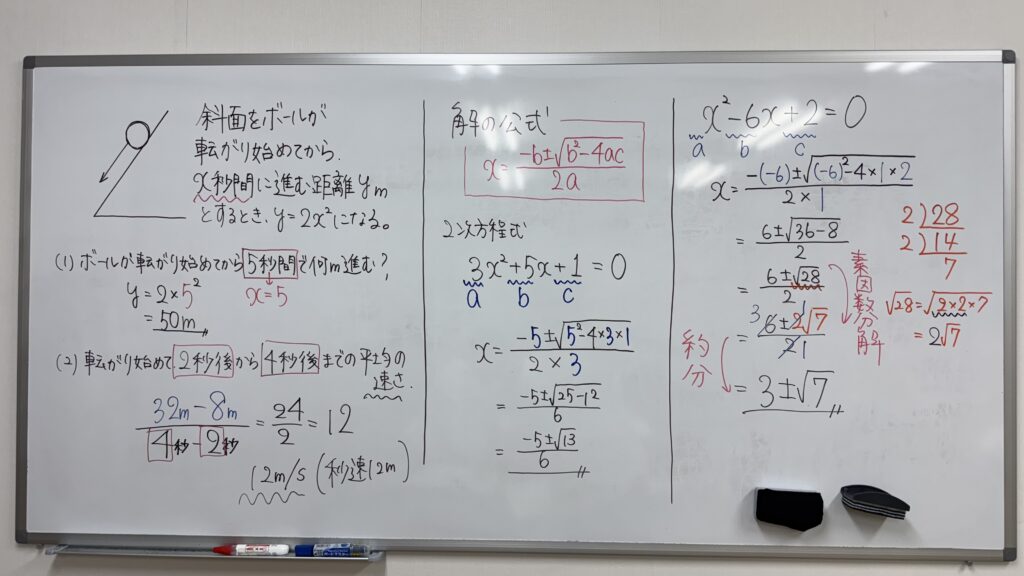 斜面をボールが
転がり始めてから、
x秒間に進む距離 ym
とするとき、y=2x²になる。
(1) ボールが転がり始めてから5秒間で何m進む?
y=2×5² x=5
=50m
(2) 転がり始めて2秒後から4秒後までの平均の
速さ.
32m-8m/4秒-2秒 = 24/2 = 12
12m/s (秒速12m)
解の公式
x=-b±√b²-4ac/2a
2次方程式
3x²+5x+1=0
a b c
x=-5±√5²-4×3×1/2×3
=-5±√25-12/6
=-5±√13/6
x²-6x+2=0
a b c
x=-(-6)±√(-6)²-4×1×2/2×1
=6±√36-8/2
=6±√28/2
=6±2√7/2
3 1 1
=3±√7
約分
素因数分解
2)28
2)14
7
√28=√2×2×7
=2√7